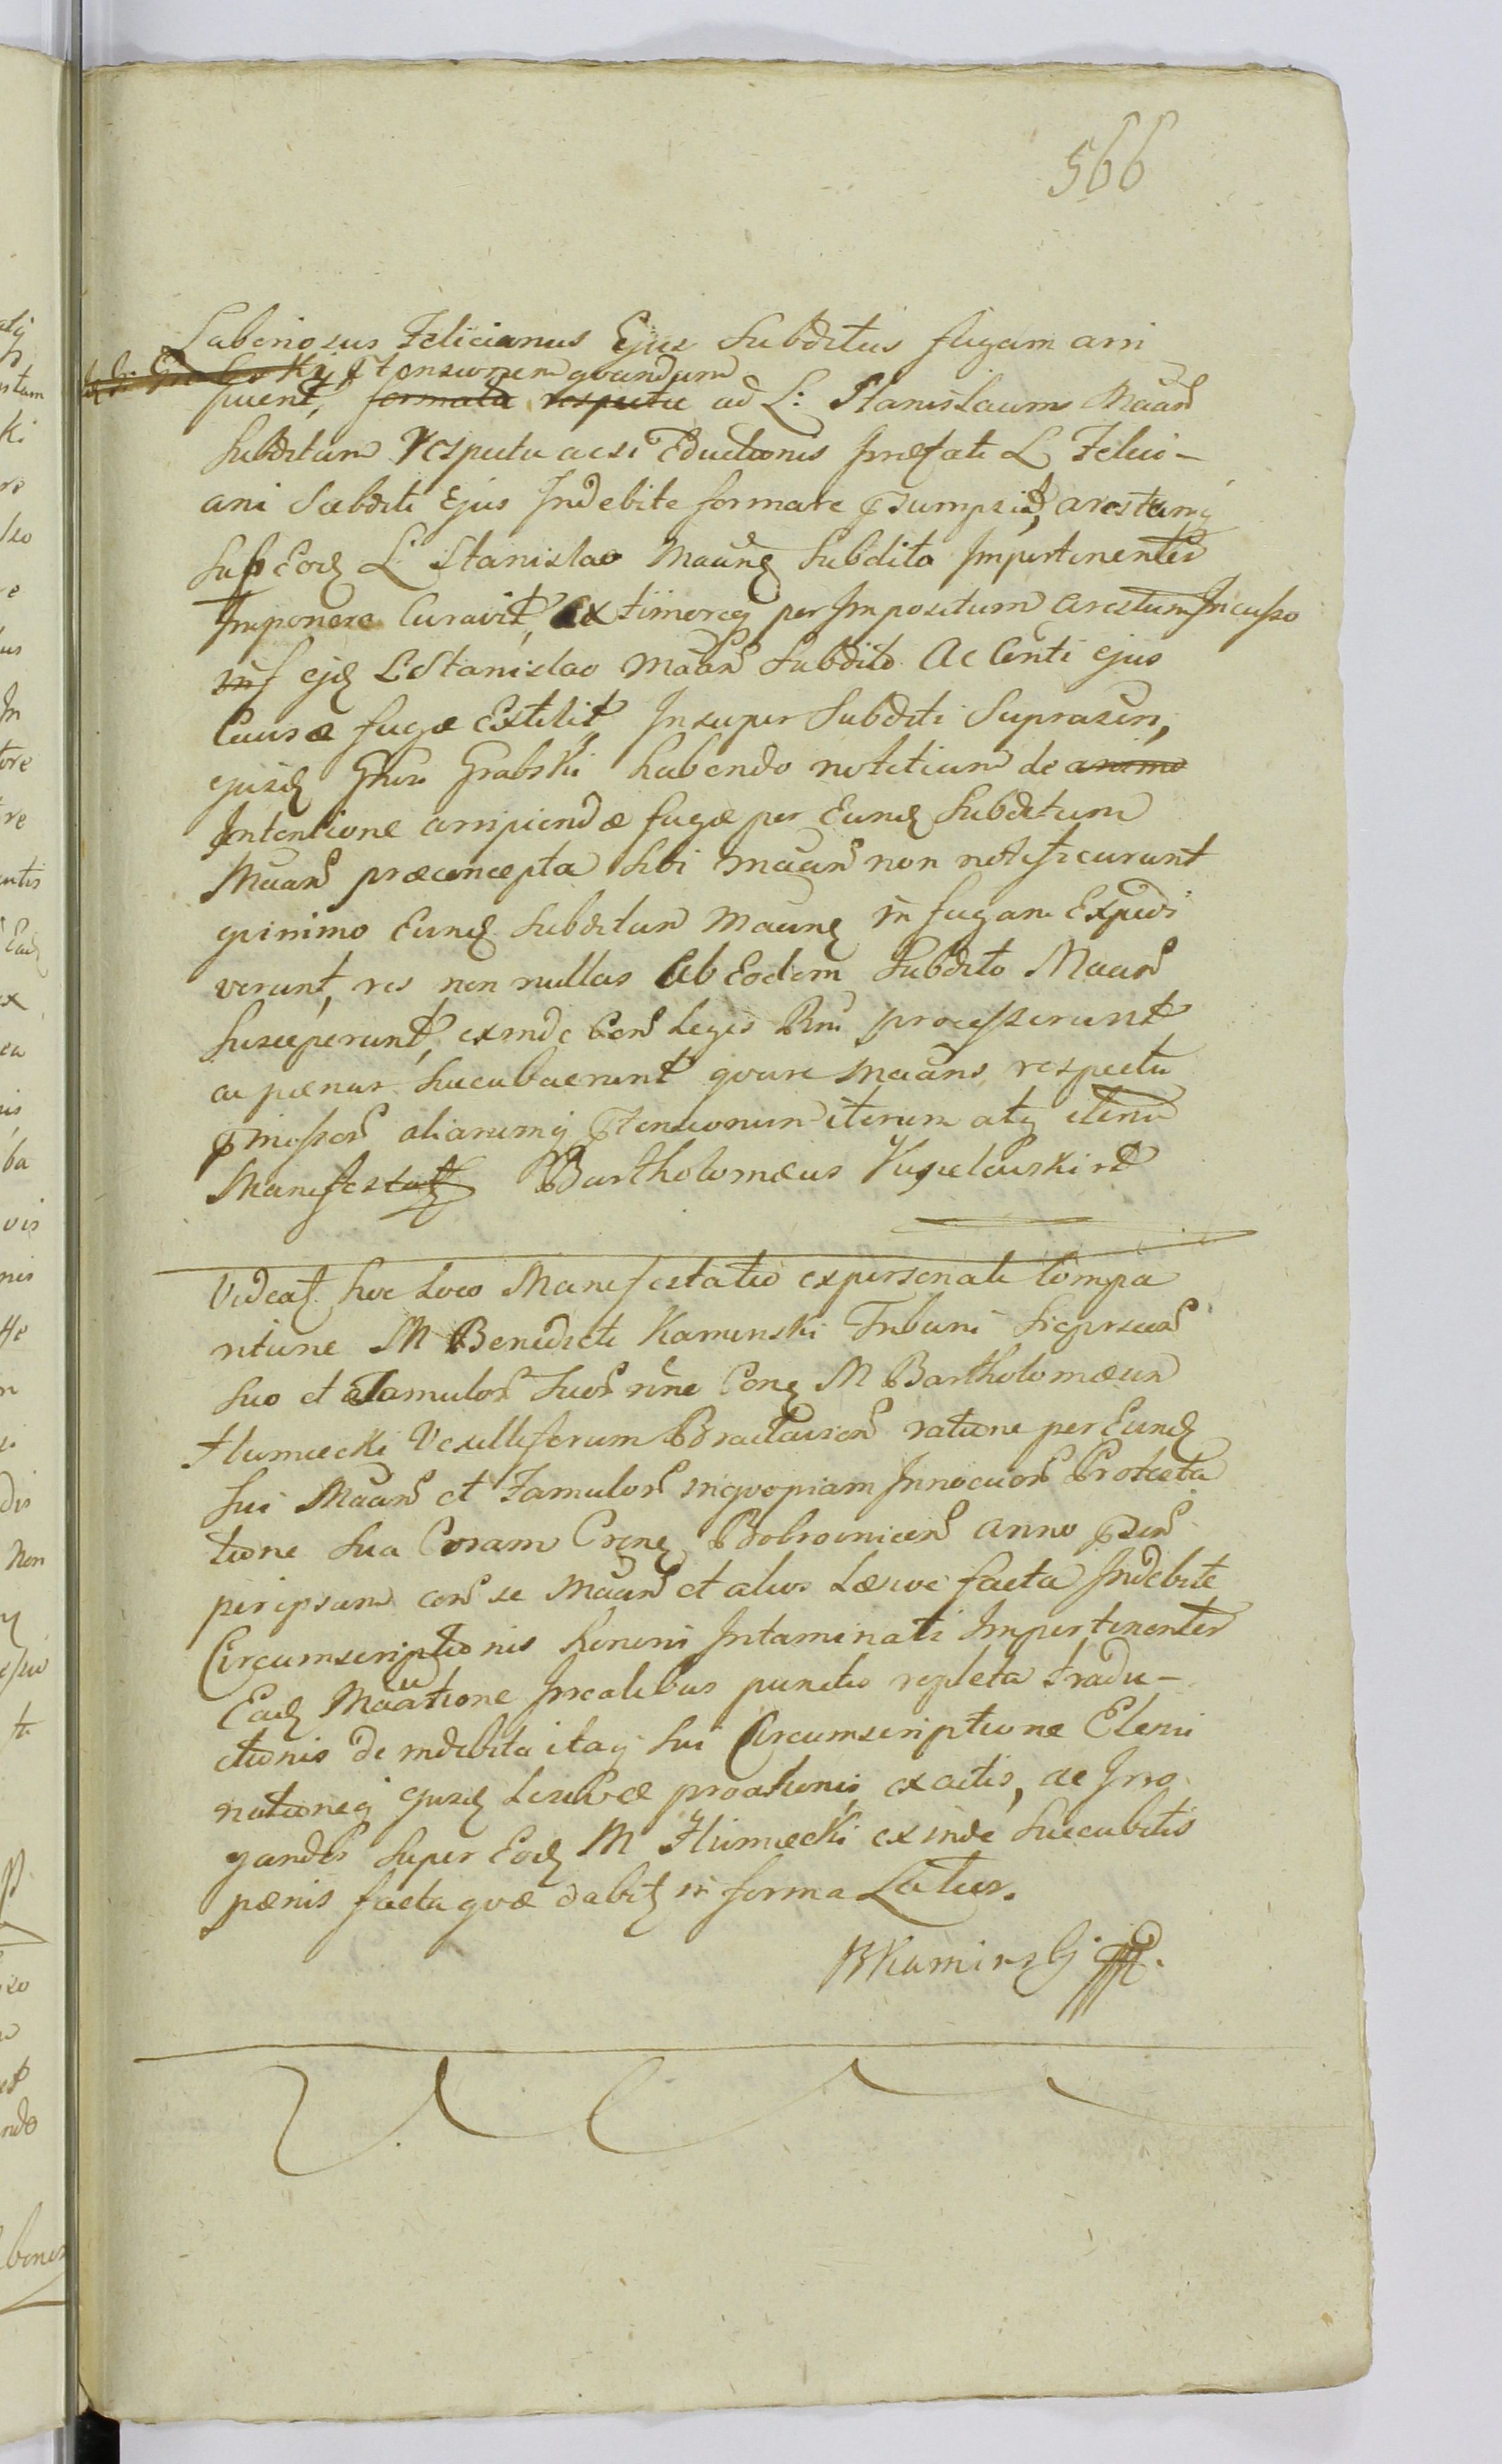 566
Laboriosus Felicianus Ejus Subditus fugam arri
Ptensionem quandam
puerit, formata respectu ad L: Stanislaum Maan
Subditum respectu acsi Eductionis Præfati L Felici-
ani Subditi Ejus Indebite formare Psumpsit, arestumq
Sup Eod L Stanislao Maane Subdito Impertinenter
Imponere Curavit, Ex timoreq per Impositum arestum Incusso
ejd L Stanislao Maan Subdito Ac Centi ejus
Causæ fugæ Extitit, Insuper Subditi Suprascri,
ejusd Gnosi Grabski habendo notitiam de animo
Intentione arripiendæ fugæ per Eund Subditum
Maan præconcepta Sibi Maan non notificarunt
quinimo Eund Subditum Maane in fugam Expedi
verunt, res non nullas Ab Eodem Subdito Maan
Susceperunt, exinde Con Leges Rni processerunt
ac pænas Sucubuerunt quare Maans respectu
Pmissor aliarumq Ptensionum iterum atq iterum
Manifestat Bartholomæus
Videat hoc Loco Manifestatio expersonali Compa
ritione M Benedicti Kaminski Tribuni
Suo et Famulor Suor nne Cone M Bartholomæum
Humiecki Vexilliferum Braclavien ratione per Eund
Sui Maan et Famulor inquopiam Innocuor Protesta
tione Sua Coram Bobrovnicen anno Psen
per ipsum con se Maan et alios Læsive facta Indebite
Circumscriptionis honoris Intaminati Impertinenter
Ead Maatione Præalibus punctis repleta tradu-
ctionis de indebita itaq Sui Circumscriptione Elimi
nationeq ejusd Læsivæ exactis, ac Irro
gandis Super Eod M Humiecki exinde Succubitis
pænis facta quæ dabit in forma Latius.
BKaminski